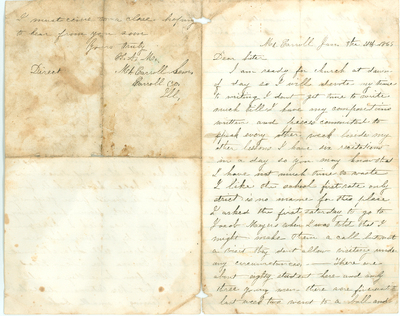 I must come to a close hoping
to hear from you soon
Yours truly
Direct Mt Carroll Sem
Carroll Co
Ill.
Mt Carroll Jan
Dear Sister
I am ready for church at
of day so I will devote
to writing I don't get time to write
much till I have my compositions
written and pieces committed to
speak every other week beside my
other lessons I have six recitations
in a day so you may know that
I have not much time to write
I like the school first rate only
strict is no name for this place
I asked the first saturday to go to
Jacob when I was told that I
might make them a call but not
a visit they don't allow under
any circumstances There are
about eighty students here and only
three young men there were
last week two went to a ball and